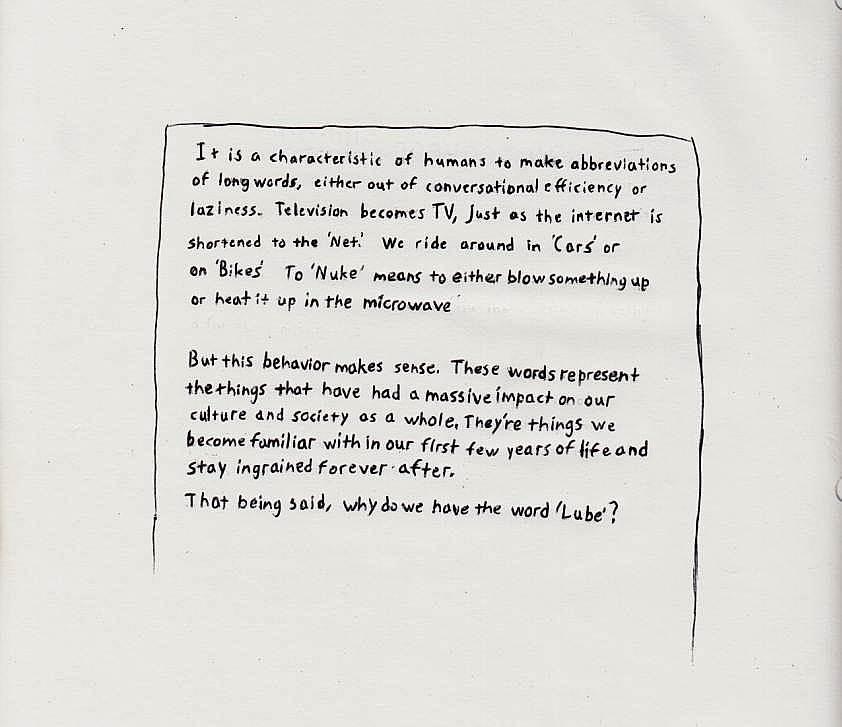 It is a characteristic of humans to make abbreviations
of long words, either out of conversational efficiency or
laziness. Television becomes TV, Just as the internet is
shortened to the 'Net.' We ride around in 'Cars' or
on 'Bikes' To 'Nuke' means to either blow something up
or heat it up in the microwave
But this behavior makes sense. These words represent
the things that have had a massive impact on our
culture and society as a whole. They're things we
become familiar with in our first few years of life and
stay ingrained forever after.
That being said, why do we have the word 'Lube'?